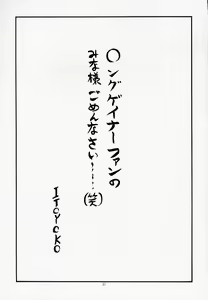 〇ングゲイナーファンの
みな様ごめんなさい……
(笑)
ITOYOKO